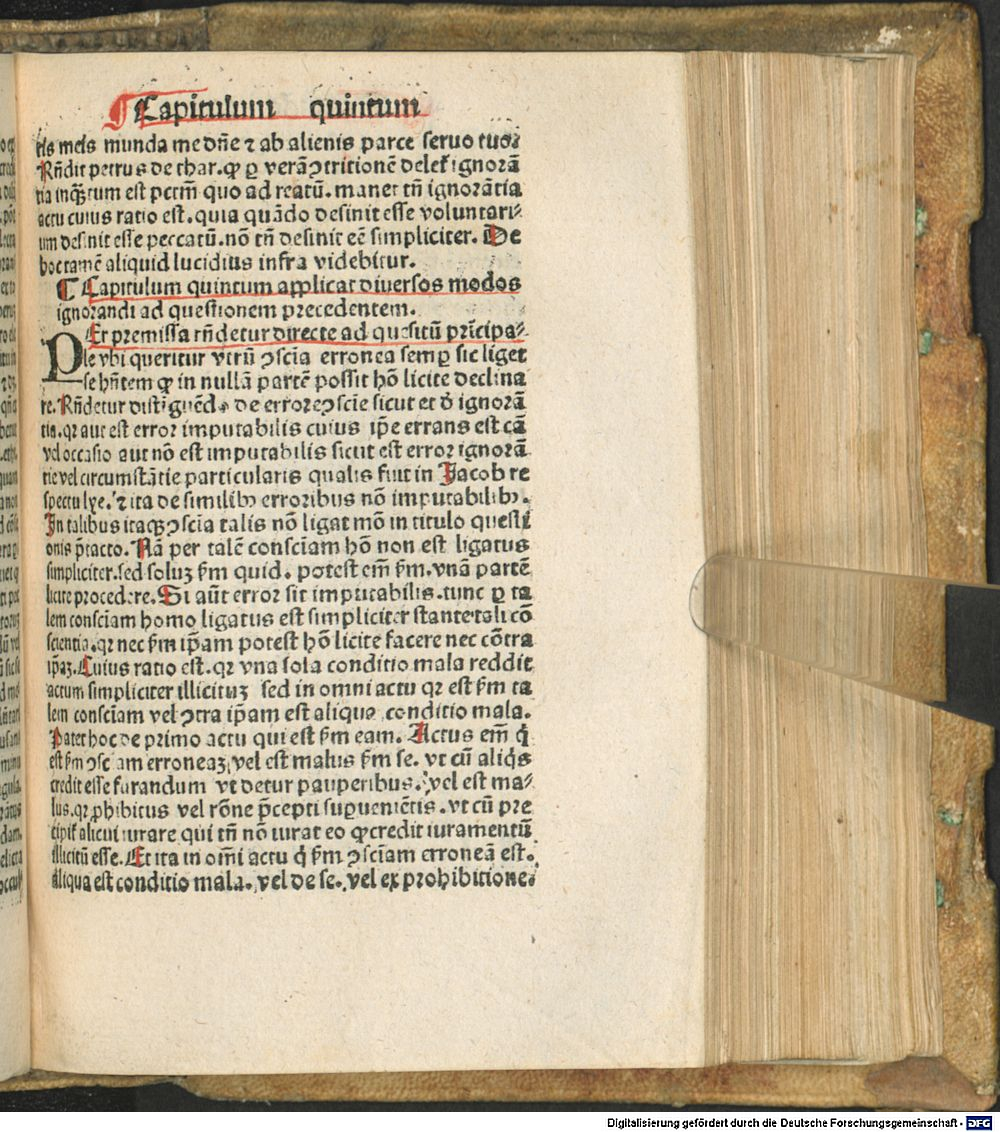 Capitulum quintum
tis meis munda me dñe ⁊ ab alienis parce seruo tuo:
Rñdit petrus de thar. ꝙ ꝑ verã ꝯtritionē delet᷑ ignorã
tia inqꝫtum est pctm̄ quo ad reatū. manet tñ ignorãtia
actu cuius ratio est. quia quãdo desinit esse voluntari⸗
um desinit esse peccatū. nō tñ desinit eē simpliciter. De
hoc tamē aliquid lucidius infra videbitur.
⁋ Capitulum quintum applicat diuersos modos
ignorandi ad questionem precedentem.
PEr premissa rñdetur directe ad quesitū prīcipa⸗
le vbi queritur vtrū ꝯscīa erronea semꝑ sic liget
se hñtem ꝙ in nullã partē possit hō licite declina
re. Rñdetur distīguēdo de errore ꝯscīe sicut et ð ignorã
tia. qꝛ aut est error imputabilis cuius ip̄e errans est cã
vel occasio aut nō est imputabilis sicut est error ignorã
tie vel circumstãtie particularis qualis fuit in Jacob re
spectu lye. ⁊ ita de similibꝰ erroribus nō imputabilibꝰ.
In talibus itaqꝫ ꝯscīa talis nō ligat mō in titulo questi
onis p̄tacto. Nã per talē consciam hō non est ligatus
simpliciter. sed soluꝫ ẜm quid. potest em̄ ẜm. vnã partē
licite procedere. Si aūt error sit imputabilis. tunc ꝑ ta
lem consciam homo ligatus est simpliciter stante tali cō
scientia. qꝛ nec ẜm ip̄am potest hō licite facere nec cōtra
ip̄aꝫ. Cuius ratio est. qꝛ vna sola conditio mala reddit
actum simpliciter illicituꝫ sed in omni actu qꝛ est ẜm ta
lem consciam vel ꝯtra ip̄am est aliqua conditio mala.
Patet hoc de primo actu qui est ẜm eam. Actus em̄ q̇
est ẜm ꝯsciam erroneaꝫ, vel est malus ẜm se. vt cū aliq̇s
credit esse furandum vt detur pauperibus. vel est ma⸗
lus. qꝛ ꝓhibitus vel rōne p̄cepti suꝑueniētis. vt cū pre
cipit᷑ alicui iurare qui tñ nō iurat eo ꝙ credit iuramentū
illicitū esse. Et ita in om̄i actu q̇ ẜm ꝯsciam erroneã est.
aliqua est conditio mala. vel de se. vel ex prohibitione.
Digitalisierung gefördert durch die Deutsche Forschungsgemeinschaft - DFG